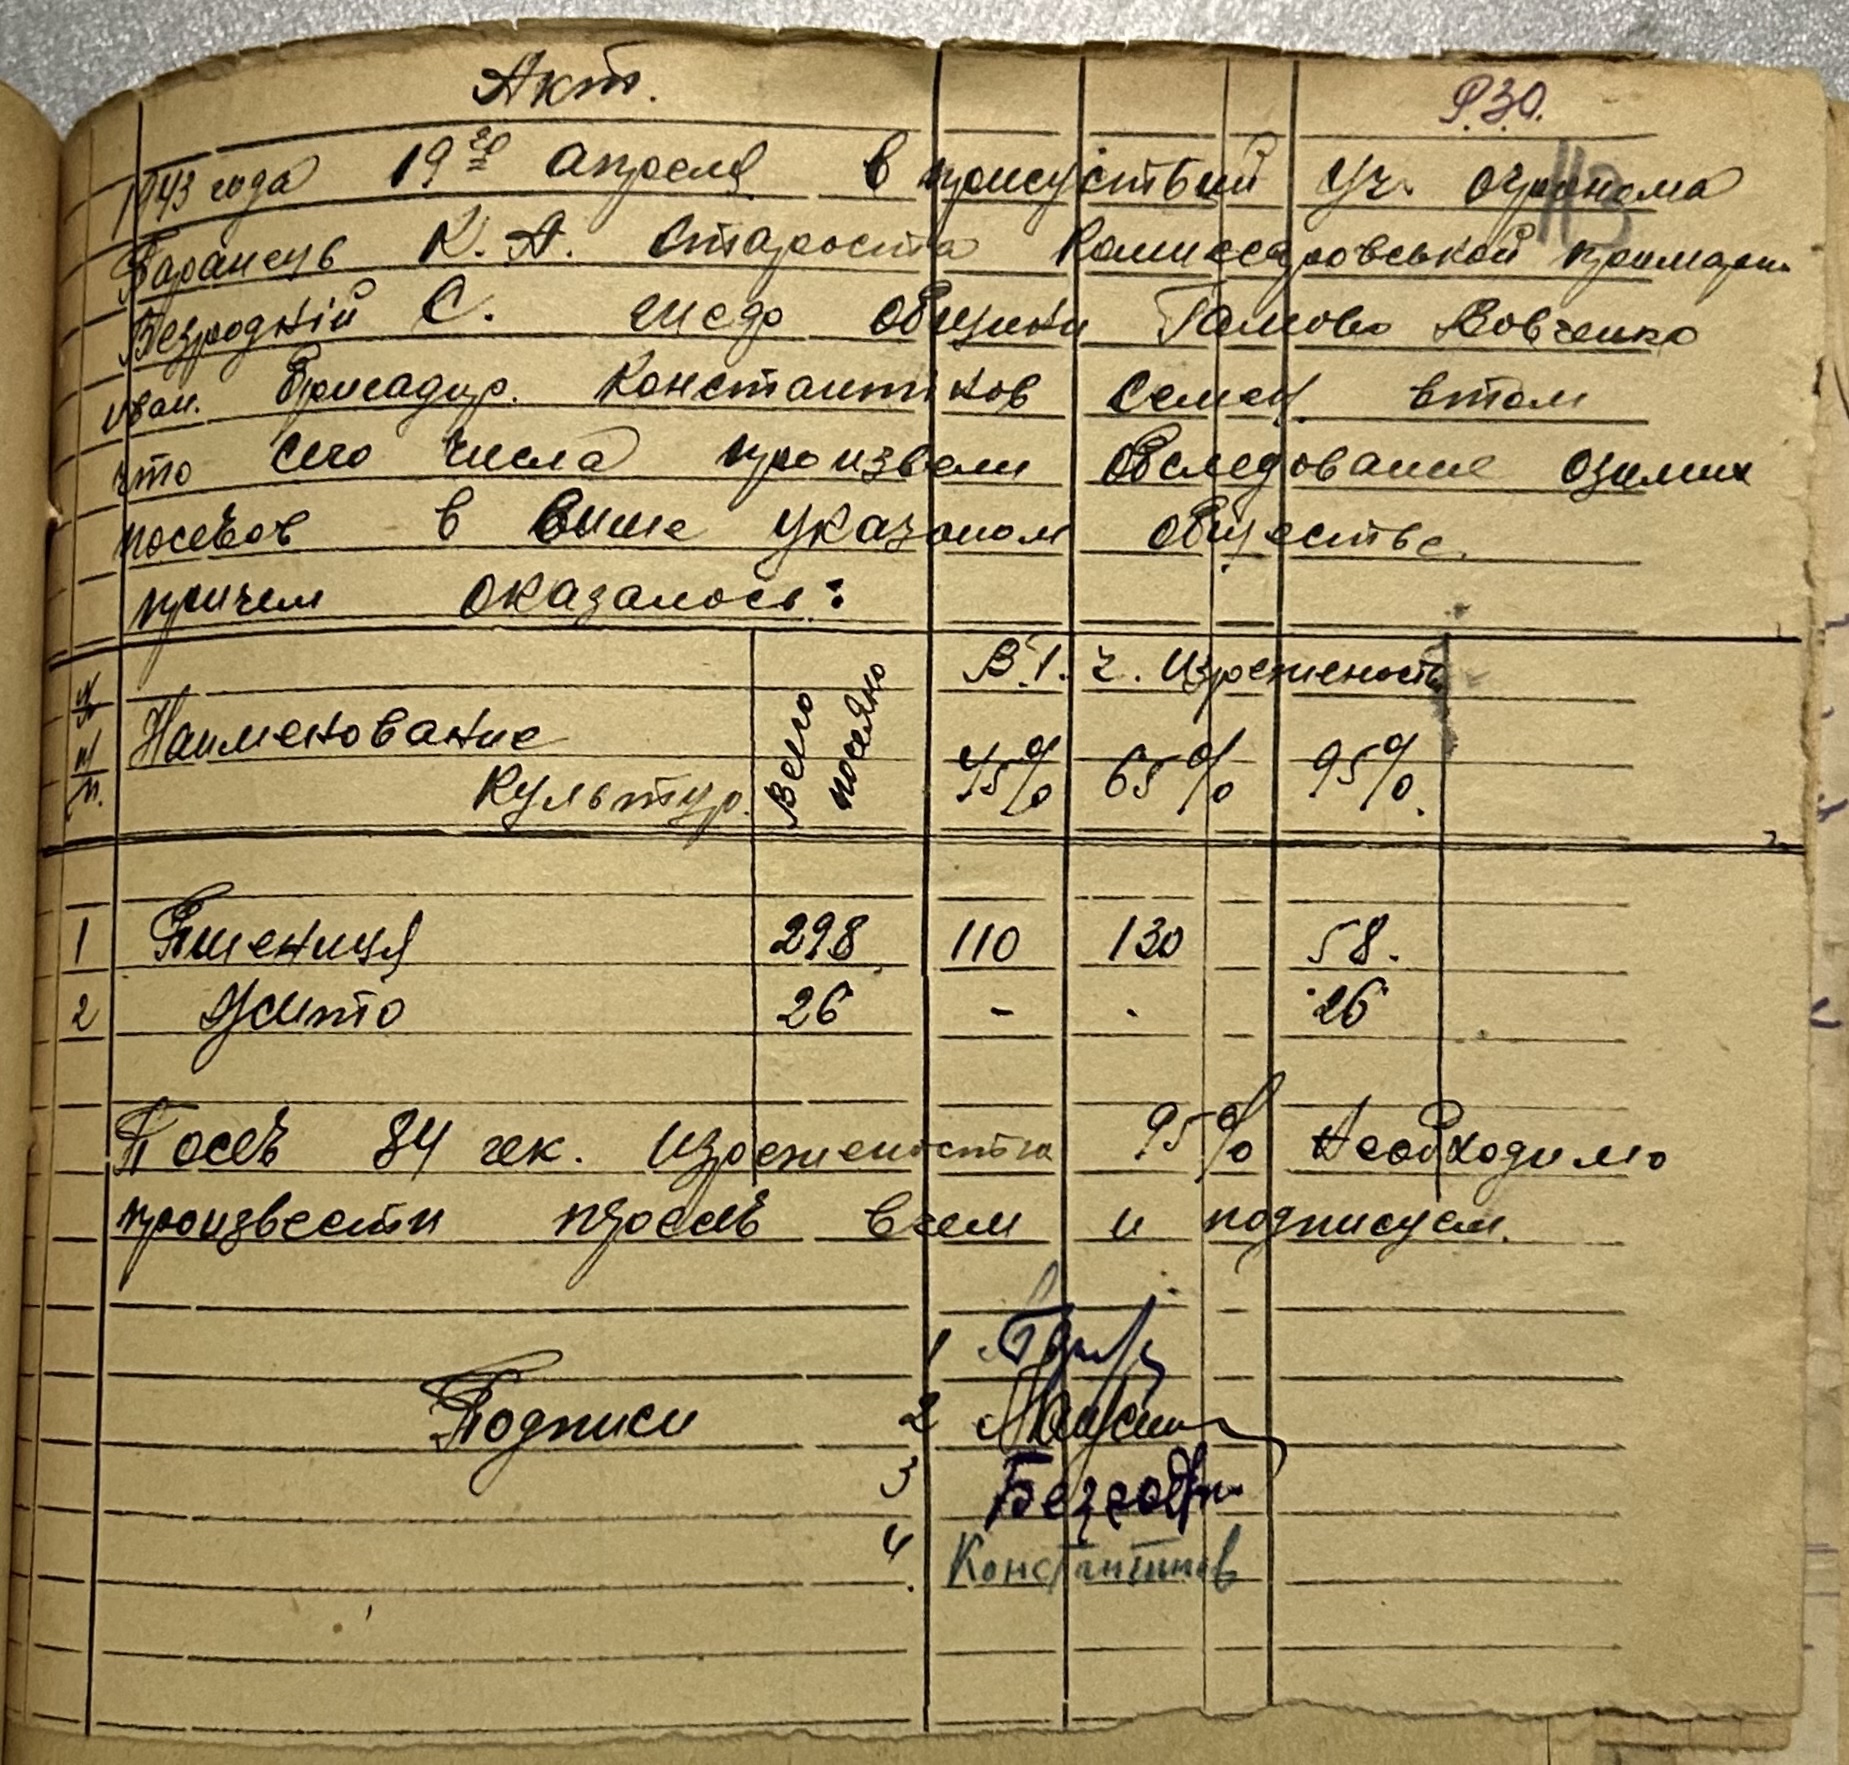 Акт.
Р.30.
113
1943 года 19го апреля в присуствии уч. огронома
Баранець К. А. Староста Комиссаровськой примари
Безродній С. шефо общины Гамово Вовченко
иван. Бригадир. Константінов Семен втом
что сего числа произвели обследование озимих
посевов в више указаном обществе.
причем оказалось:
№ п/п. Наименование Культур. Всего посеяно В.т.ч. Изреженость
45% 65% 95%.
1 Пшениця 298 110 130 58.
2 Жито 26 - - 26
Посев 84 гек. изреженостю 95% необходимо
произвести пзосев всем и подписуем.
Подписи 1
2
3
4 Константинов